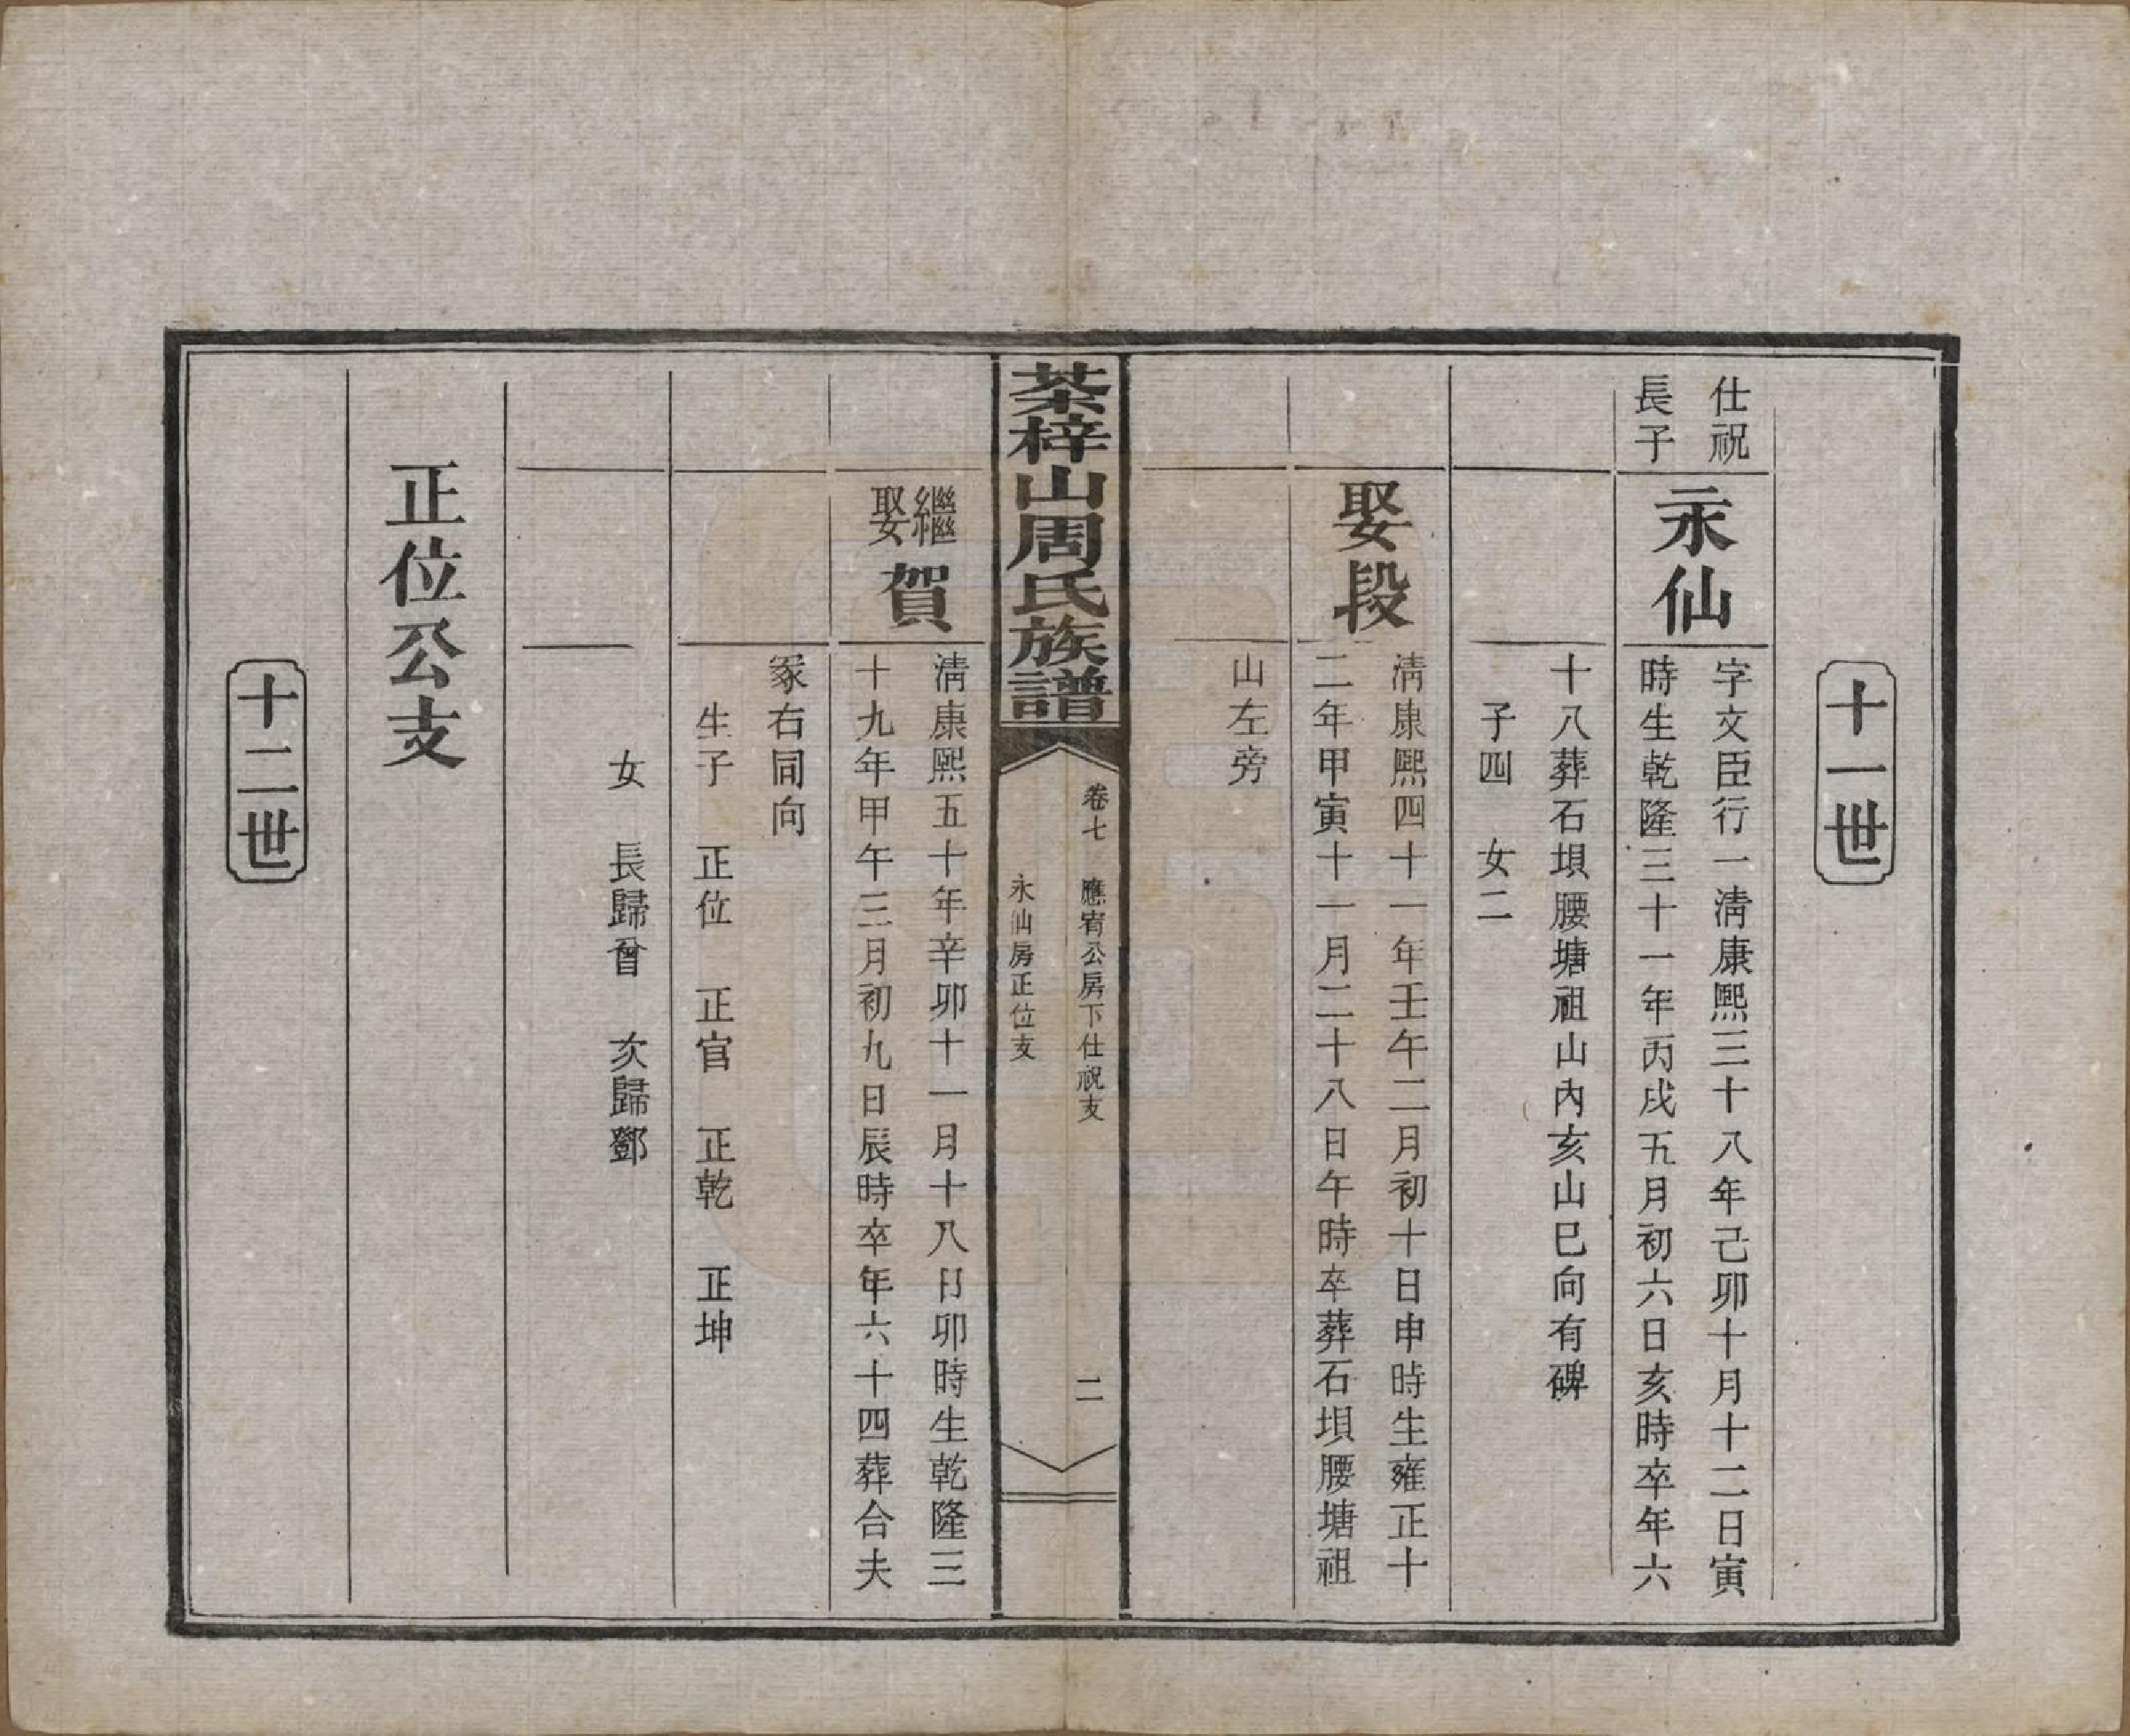 十一世
仕祝
長子
永仙
字文臣行一淸康熙三十八年己卯十月十二日寅
時生乾隆三十一年丙戌五月初六日亥時卒年六
十八葬石垻腰塘祖山內亥山巳向有碑
子四　女二
娶段
淸康熙四十一年壬午二月初十日申時生雍正十
二年甲寅十一月二十八日午時卒葬石垻腰塘祖
山左旁
茶梓山周氏族譜
卷七　應宥公房下仕祝支
永仙房正位支
二
繼娶
賀
淸康熙五十年辛卯十一月十八日卯時生乾隆三
十九年甲午三月初九日辰時卒年六十四葬合夫
冢右同向
生子　正位　正官　正乾　正坤
女　長歸曾　次歸鄧
正位公支
十二世